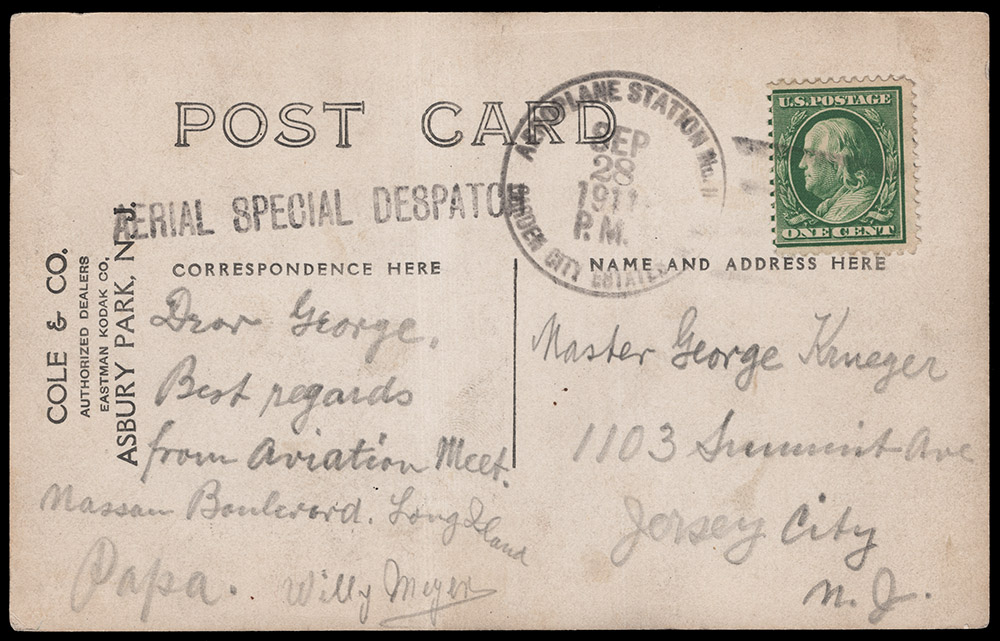 POST CARD
AERIAL SPECIAL DESPATCH
AEROPLANE STATION No. 1
SEP
28
1911
P.M.
GARDEN CITY ESTATES
U.S. POSTAGE
ONE CENT
COLE & CO.
AUTHORIZED DEALERS
EASTMAN KODAK CO,
ASBURY PARK, N.J.
CORRESPONDENCE HERE
Dear George.
Best regards
from Aviation Meet.
Nassau Boulevard. Long Island
Papa. Willy Meyer
NAME AND ADDRESS HERE
Master George Krueger
1103 Summit Ave
Jersey City
N.J.